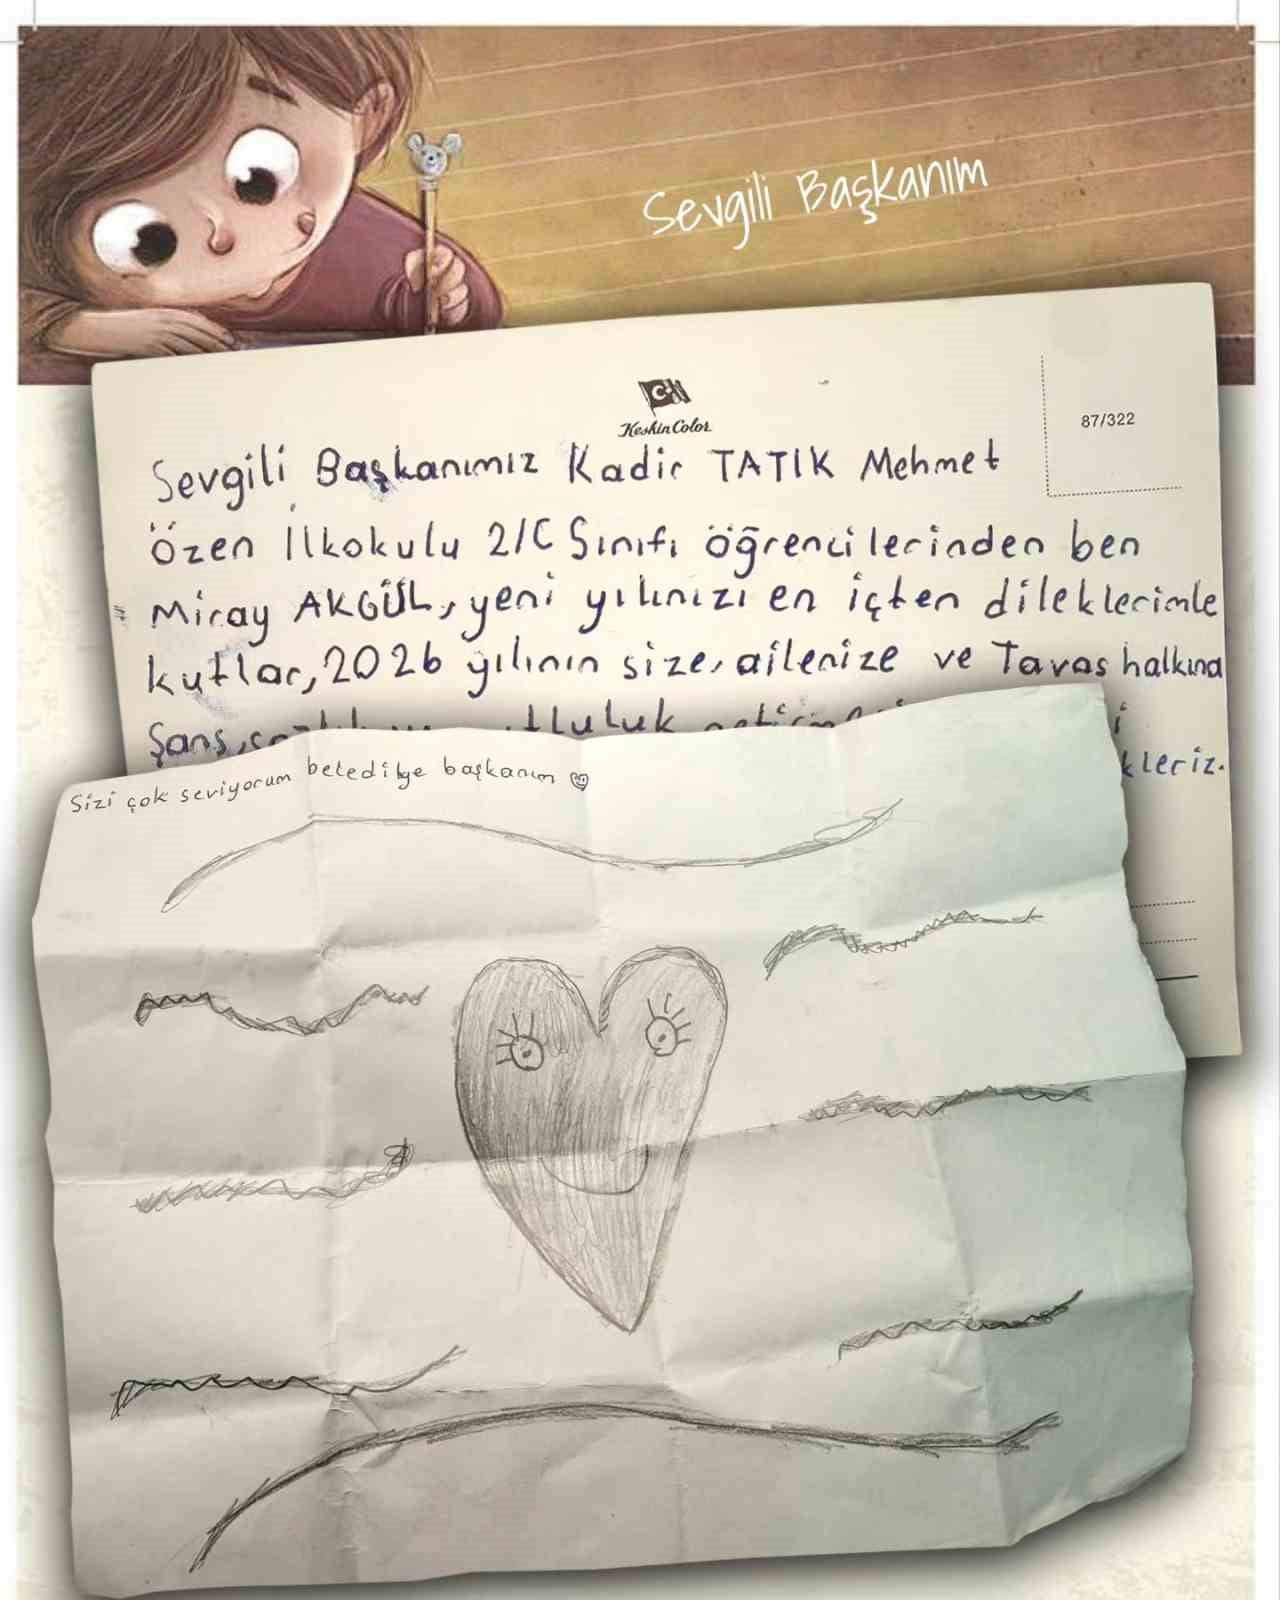 Sevgili Başkanım
KeskinColor
87/322
Sevgili Başkanımız Kadir TATIK Mehmet
Özen İlkokulu 2/C Sınıfı öğrencilerinden ben
Miray AKGÜL, yeni yılınızı en içten dileklerimle
kutlar, 2026 yılının size, ailenize ve Tavas halkına
Şans,
kleriz.
Sizi çok seviyorum belediye başkanım